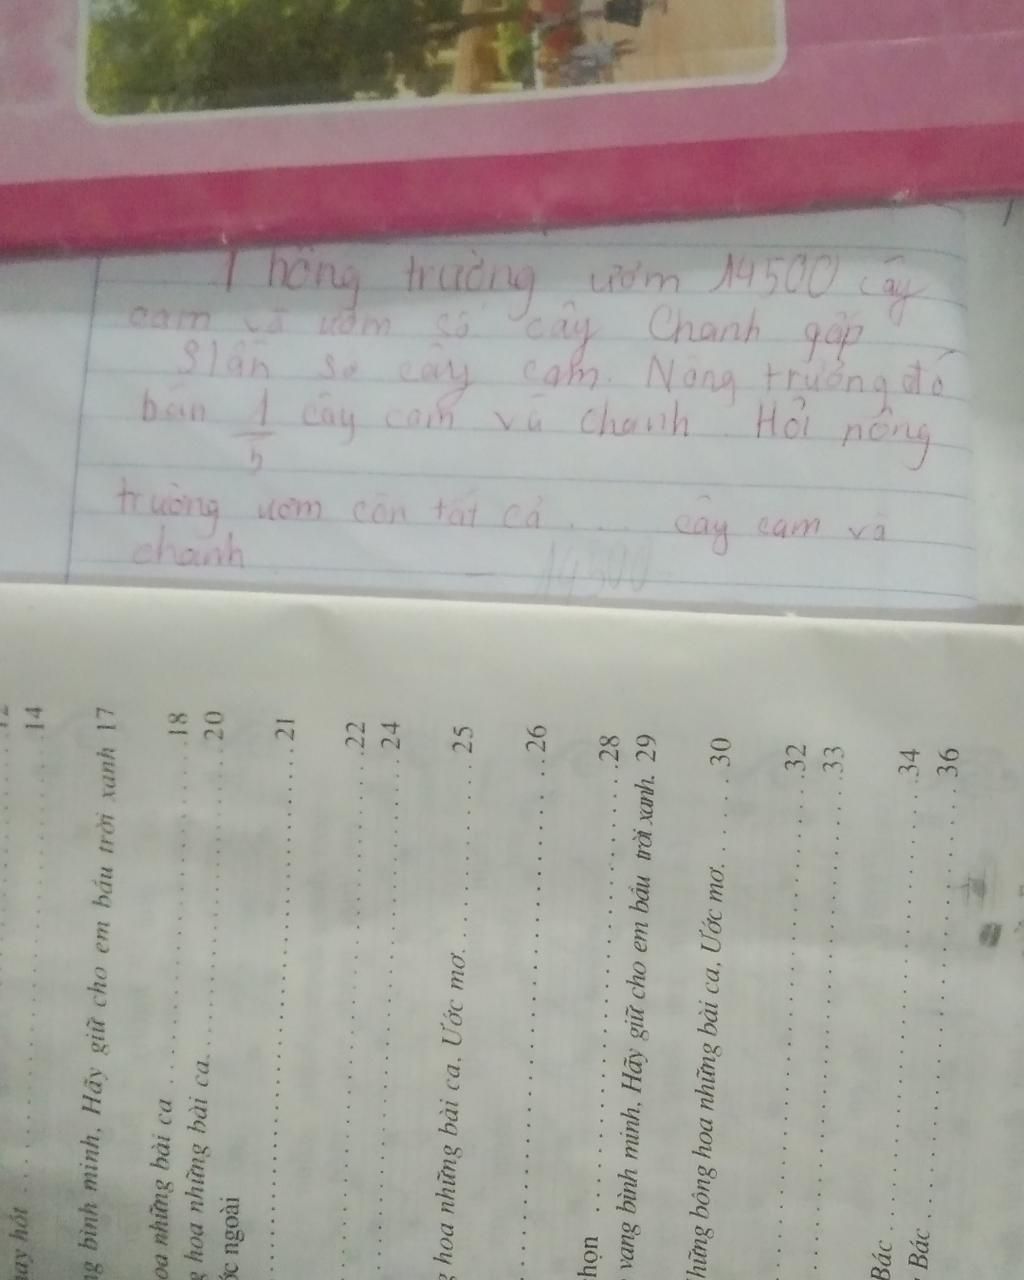 1 nông trường ươm 14500 cây
cam và ươm số cây Chanh gấp
lần số cây cam. Nông trường đó
bán 1/5 cây cam và chanh Hỏi nông
trường ươm còn tất cả .... cây cam và
chanh
14500
14
ng bình minh, Hãy giữ cho em bầu trời xanh 17
oa những bài ca . . . . . . . . . . 18
g hoa những bài ca. . . . . . . . . . 20
ớc ngoài
. . . . . . . . . . 21
. . . . . . . . . . 22
. . . . . . . . . . 24
g hoa những bài ca, Ước mơ. . . . . . . . . . 25
. . . . . . . . . . 26
họn . . . . . . . . . . 28
vang bình minh, Hãy giữ cho em bầu trời xanh. 29
hững bông hoa những bài ca, Ước mơ. . . . . . 30
. . . . . . . . . . 32
. . . . . . . . . . 33
Bác . . . . . . . . . . 34
Bác . . . . . . . . . . 36